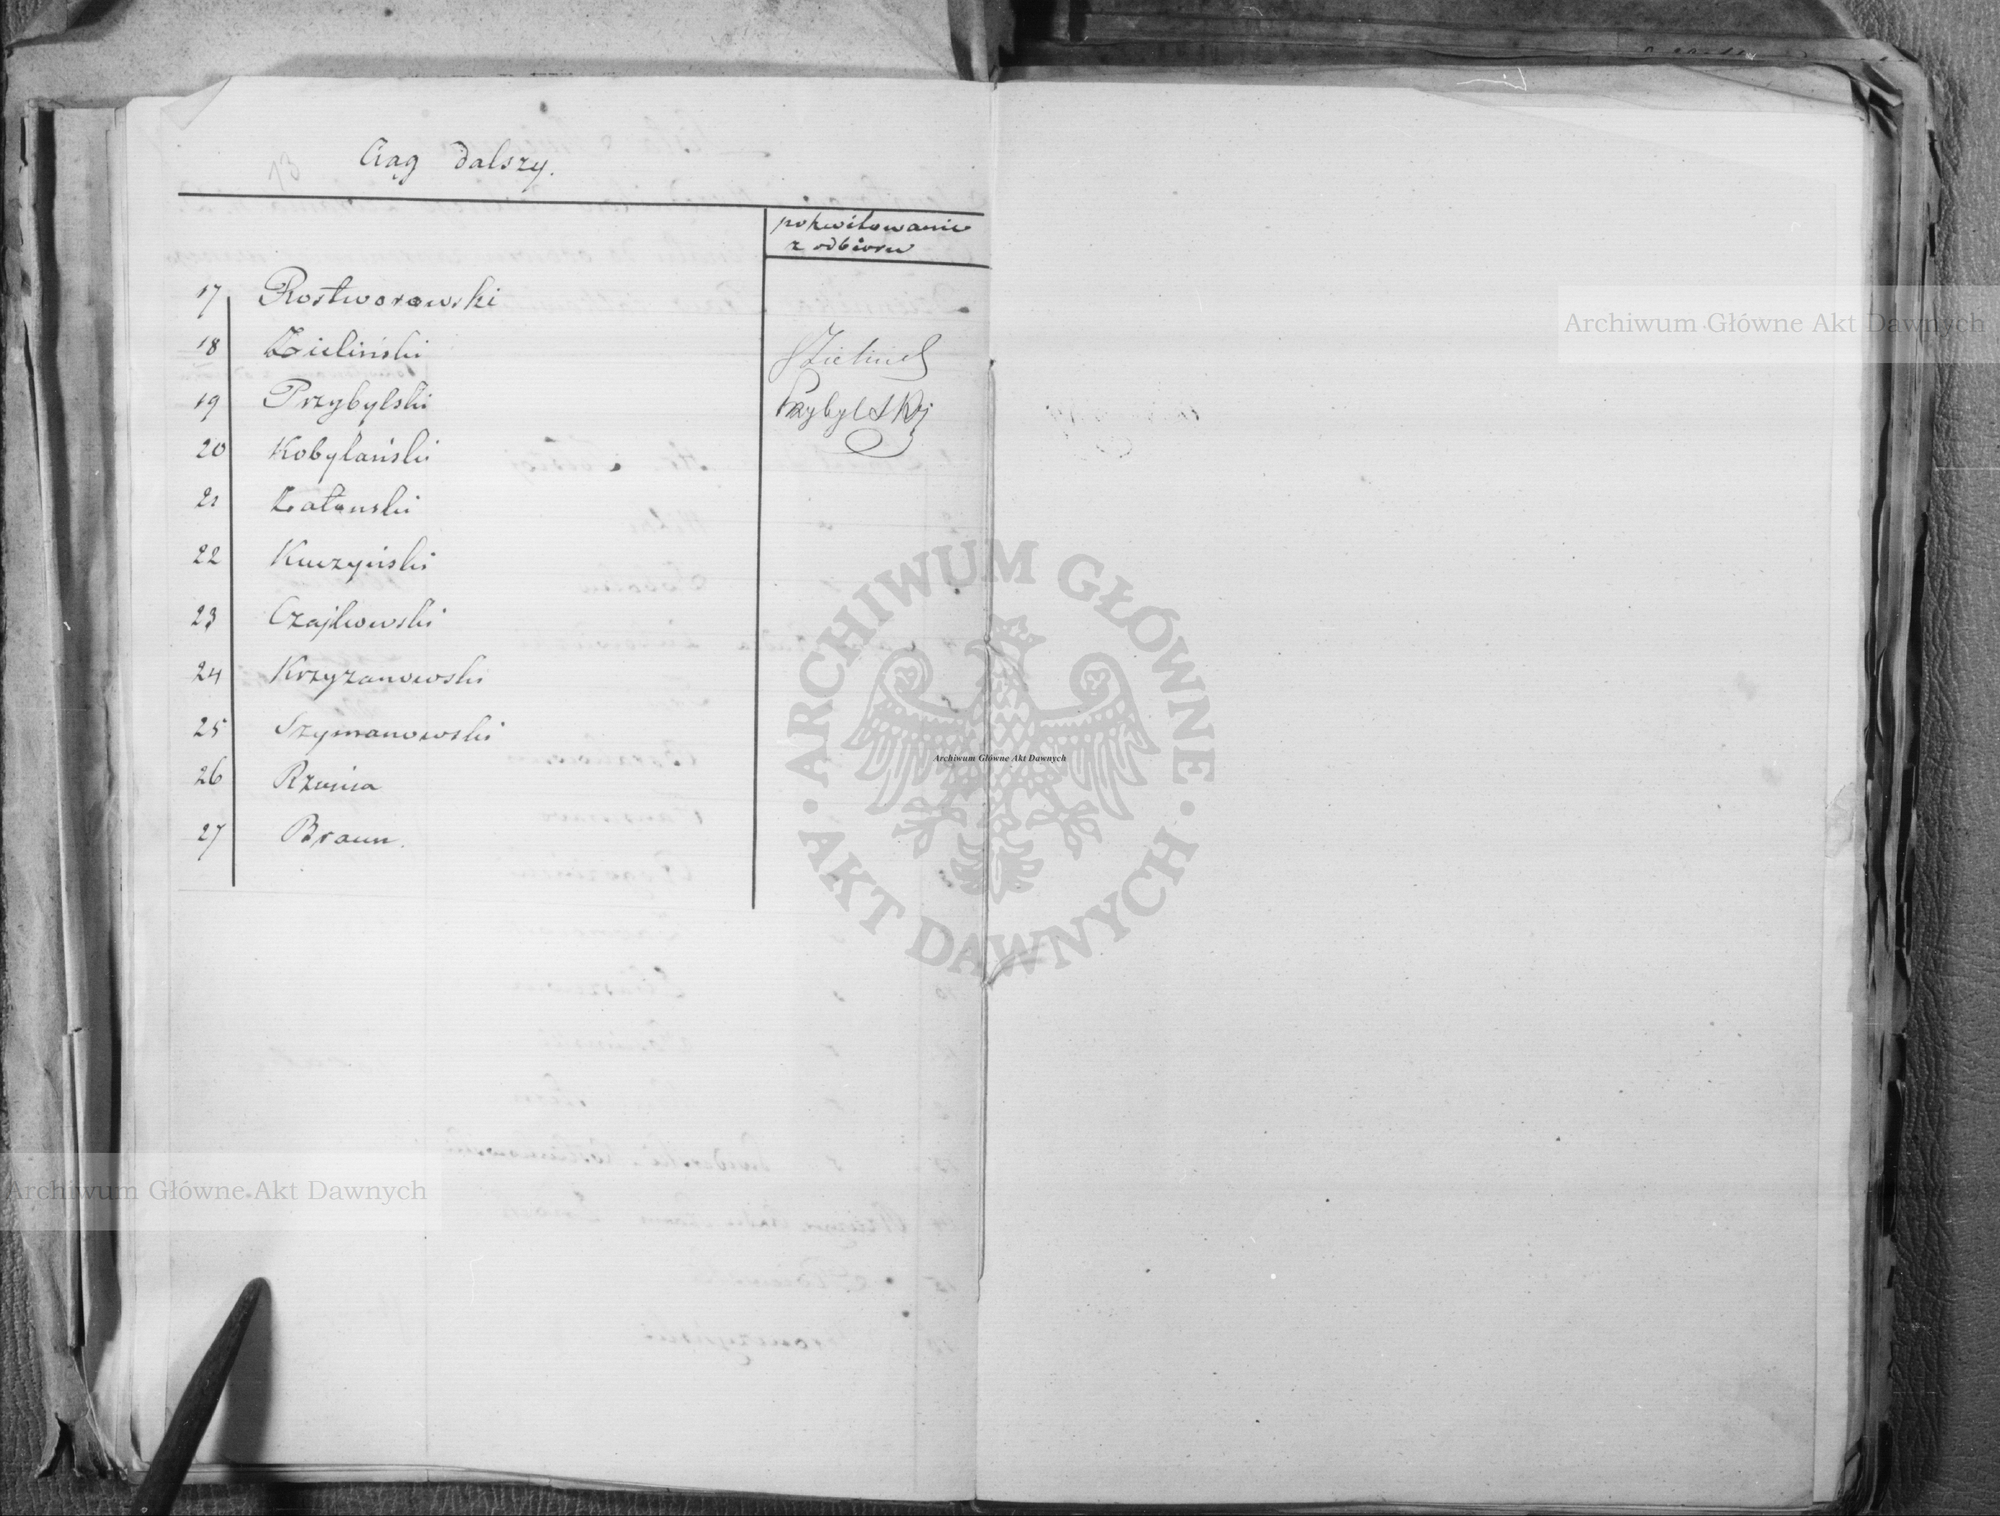 Ciąg dalszy.
pokwitowanie
z odbioru
17 Rostworowski
18 Zieliński
19 Przybylski Przybylski
20 Kobylański
21
22 Kuczyński
23 Czajkowski
24 Krzyzanowski
25 Szymanowski
26
27 Braun.
Archiwum Główne Akt Dawnych
ARCHIWUM GŁÓWNE
· AKT DAWNYCH ·
Archiwum Główne Akt Dawnych
Archiwum Główne Akt Dawnych